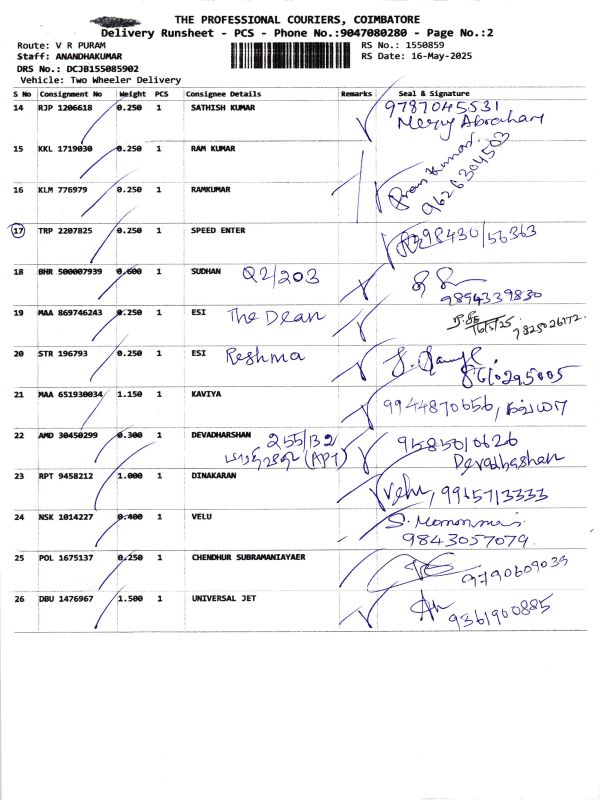 THE PROFESSIONAL COURIERS, COIMBATORE
Delivery Runsheet - PCS - Phone No.:9047080280 - Page No.:2
Route: V R PURAM
RS No.: 1550859
Staff: ANANDHAKUMAR
RS Date: 16-May-2025
DRS No.: DCJB155085902
Vehicle: Two Wheeler Delivery
S No Consignment No Weight PCS Consignee Details Remarks Seal & Signature
14 RJP 1206618 0.250 1 SATHISH KUMAR 9787045531
Mercy Abraham
15 KKL 1719030 0.250 1 RAM KUMAR
16 KLM 776979 0.250 1 RAMKUMAR Kumar
9626304503
17 TRP 2207825 0.250 1 SPEED ENTER 98430/56363
18 BHR 500007939 0.600 1 SUDHAN Q2/203
9894339830
19 MAA 869746243 0.250 1 ESI The Dean
16/5/25 7825026172
20 STR 196793 0.250 1 ESI Reshma
8610295005
21 MAA 651930034 1.150 1 KAVIYA 9944870656,
22 AMD 30450299 0.300 1 DEVADHARSHAN 255/B2 9585010626
(APT) Devadharshan
23 RPT 9458212 1.000 1 DINAKARAN Velu, 9965713333
24 NSK 1014227 0.400 1 VELU
9843057079
25 POL 1675137 0.250 1 CHENDHUR SUBRAMANIAYAER
9790609033
26 DBU 1476967 1.500 1 UNIVERSAL JET
9361900885